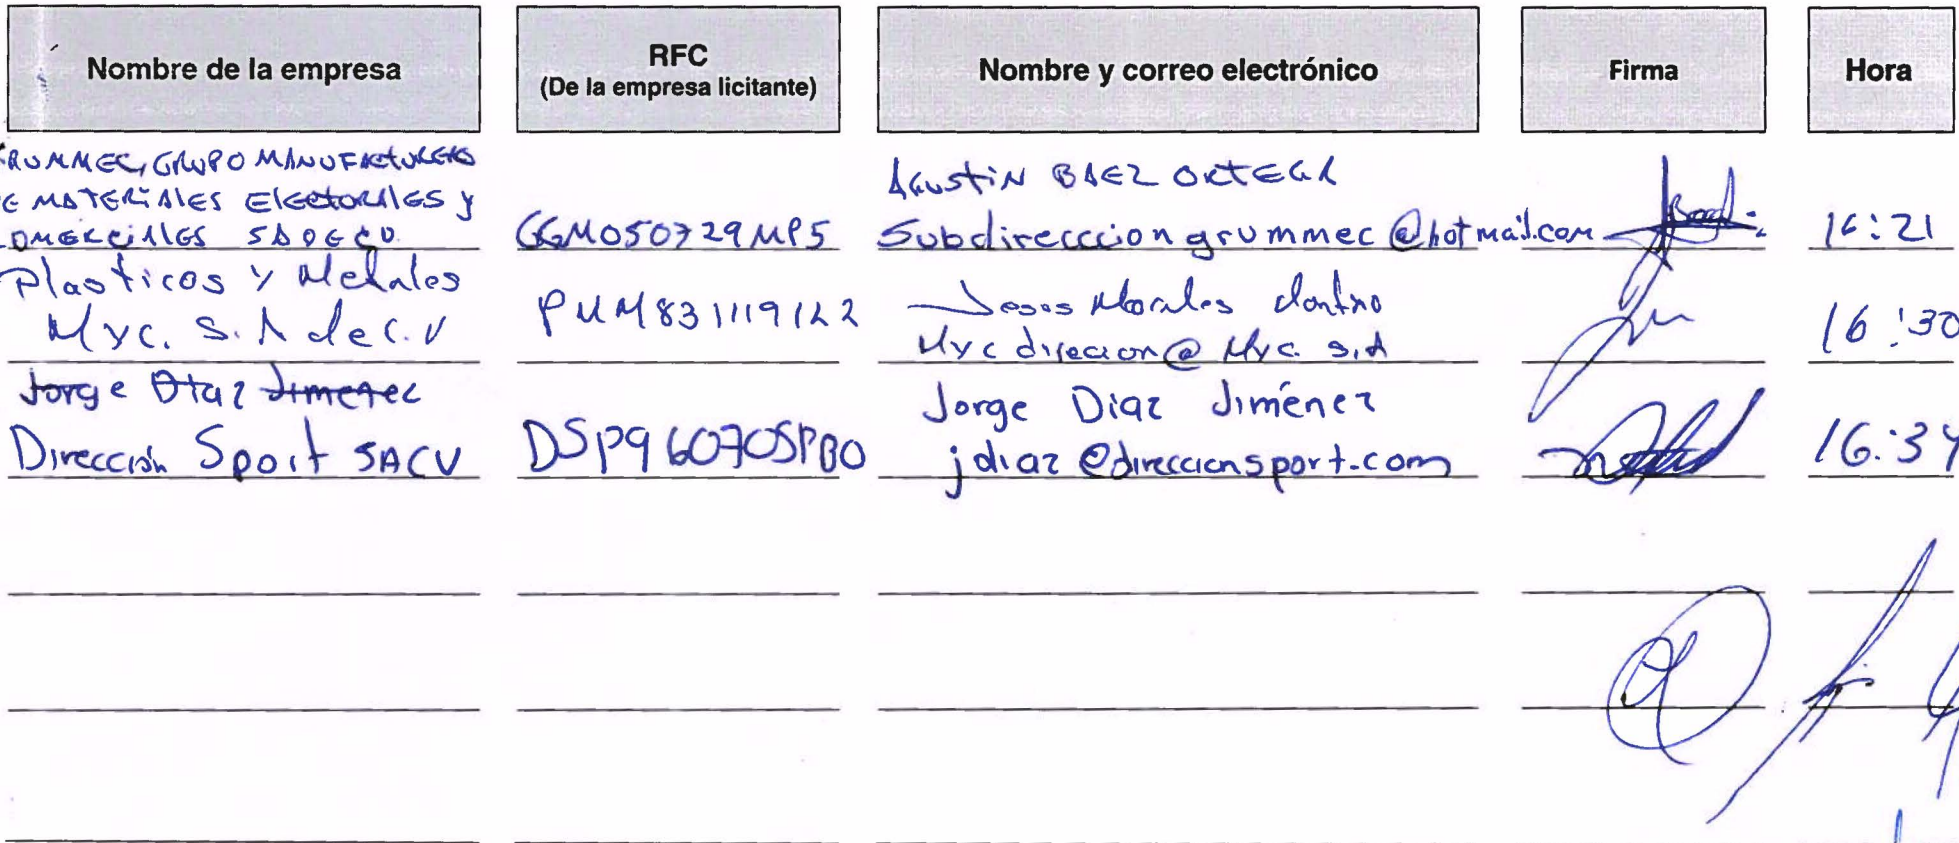 Nombre de la empresa
RFC
(De la empresa licitante)
Nombre y correo electrónico
Firma
Hora
RUMMEC, GRUPO MANUFACTURERO
E MATERIALES ELECTORALES Y
OMERCIALES SADECV
GGM050729MP5
AGUSTIN BAEZ ORTEGA
Subdireccciongrummec@hotmail.com
16:21
Plasticos y Metales
Myc. S.A de C.V
PMM831119
Morales
Myc direcion@Myc. S.A
16:30
Jorge Diaz Jimenez
Dirección Sport SACV
DSP960705PB0
Jorge Diaz Jiménez
jdiaz@direccionsport.com
16:34